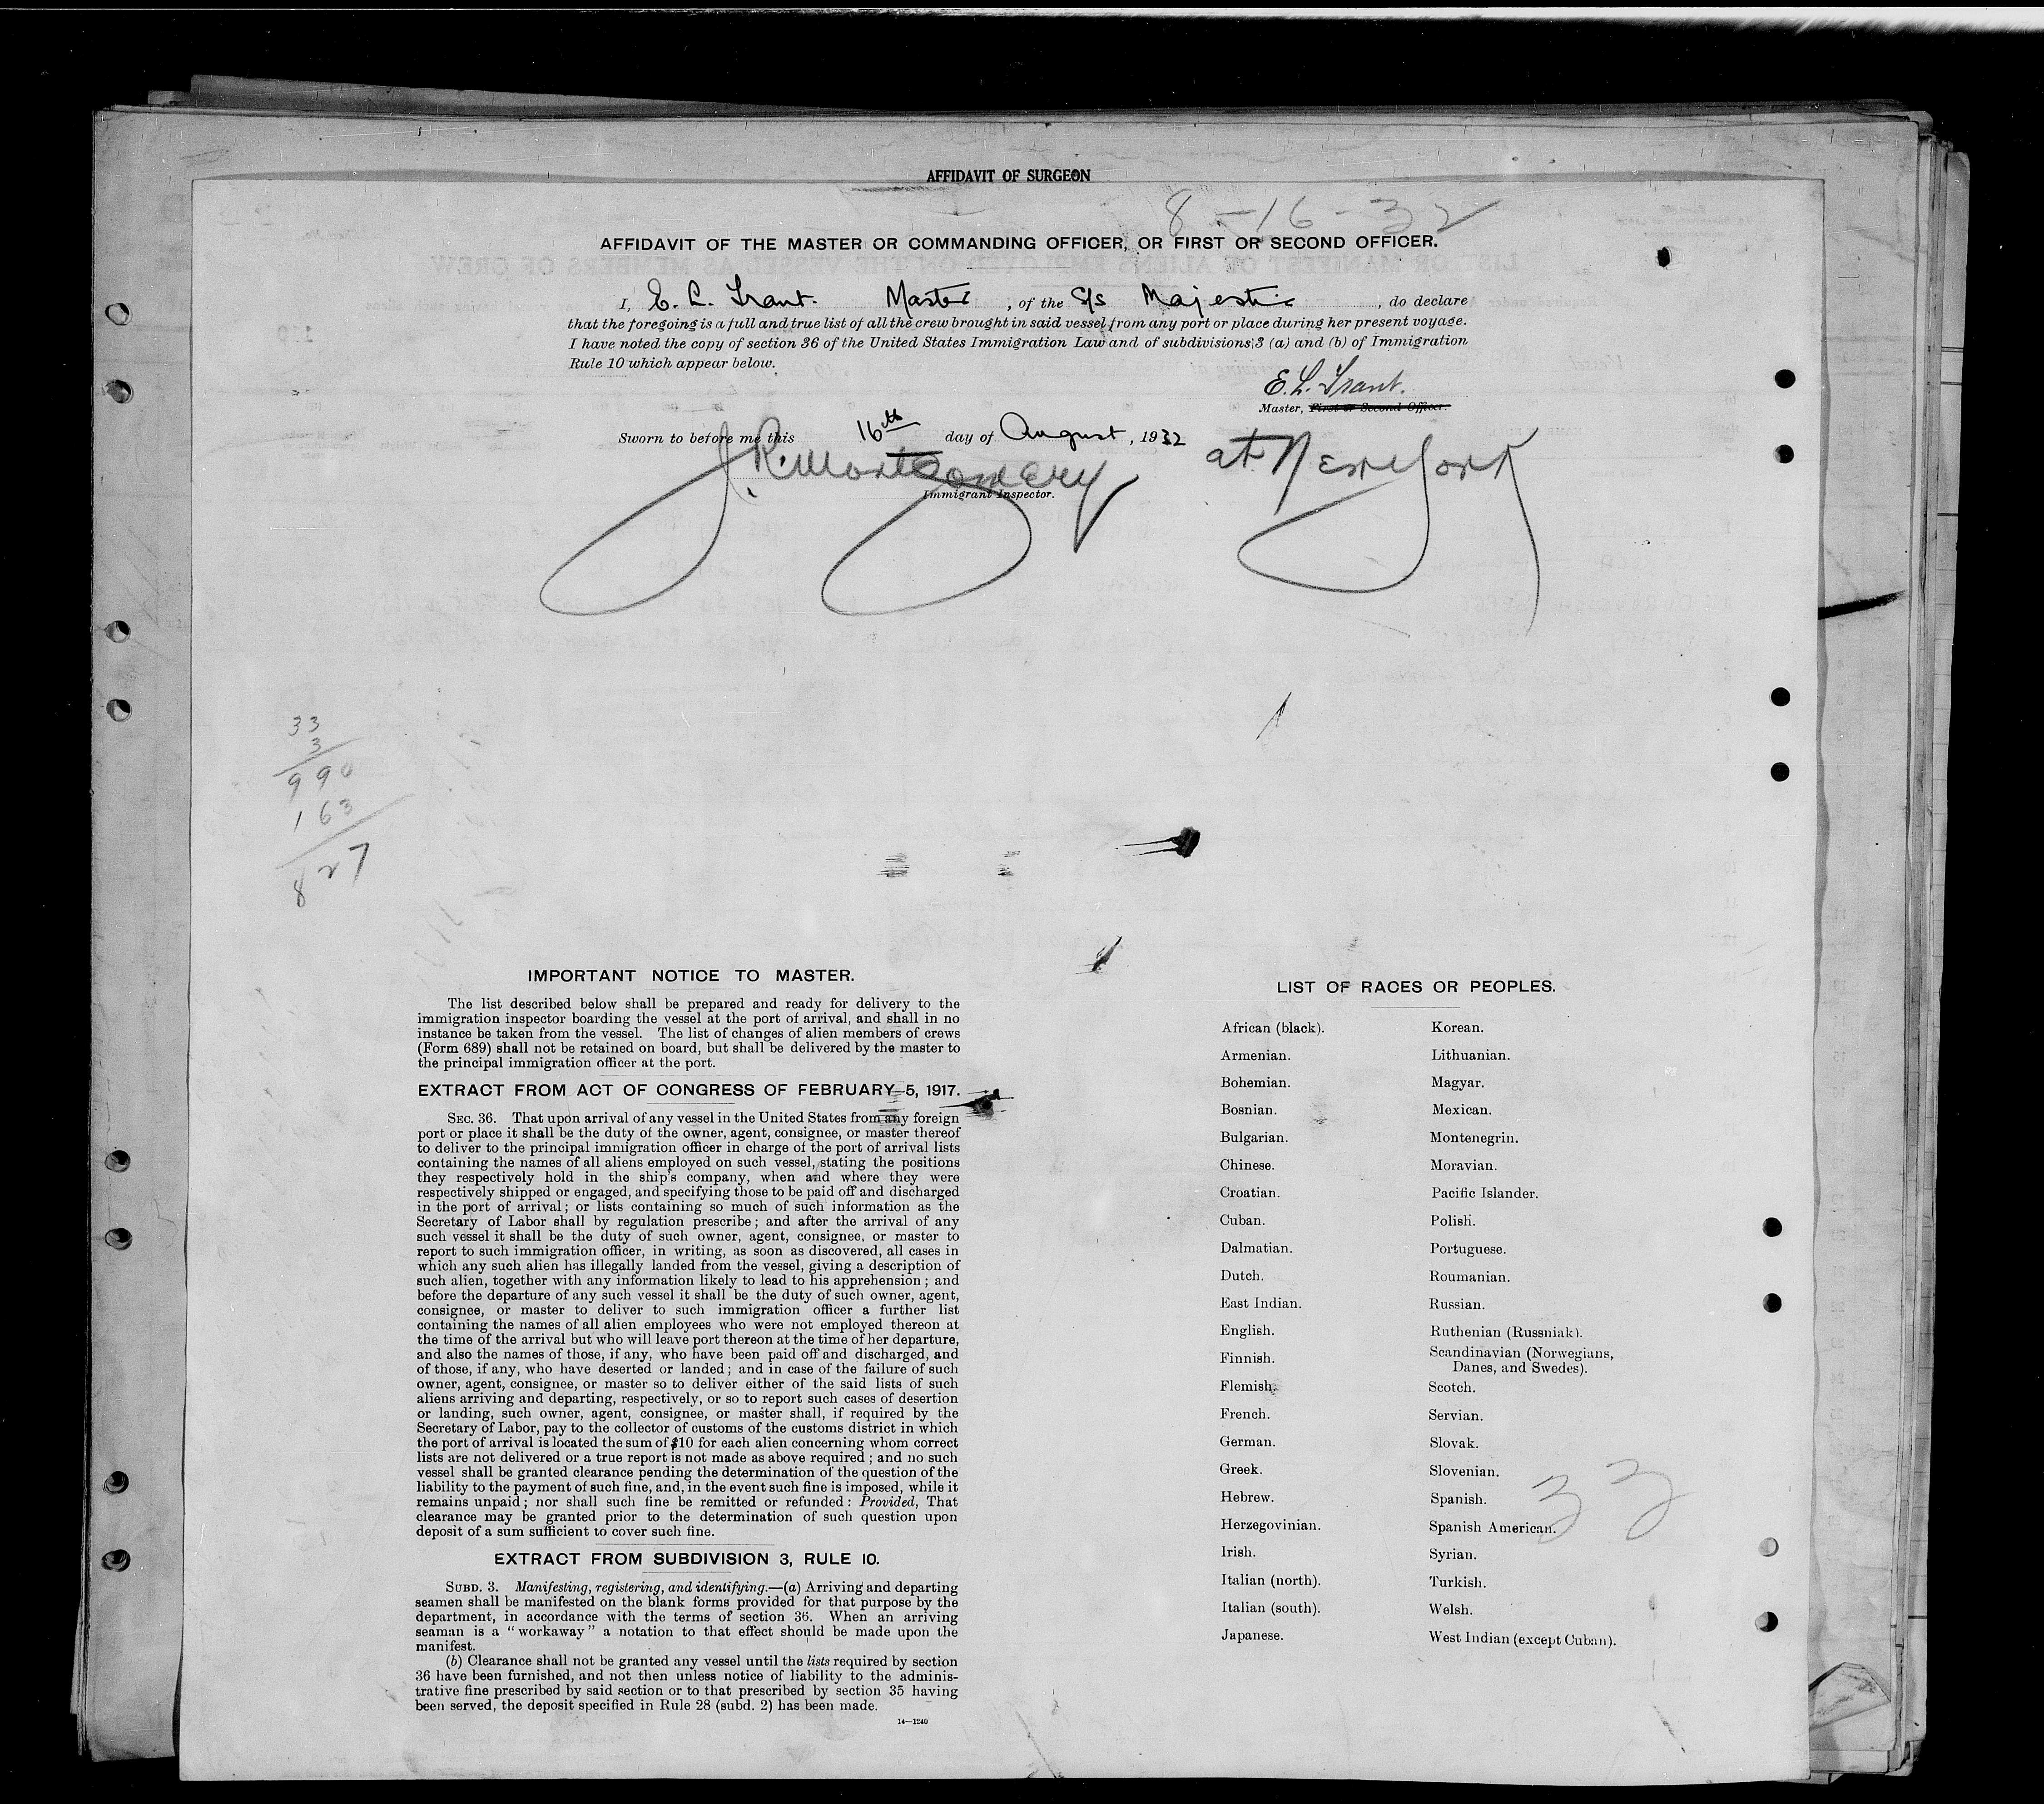 AFFIDAVIT OF SURGEON
8-16-32
AFFIDAVIT OF THE MASTER OR COMMANDING OFFICER, OR FIRST OR SECOND OFFICER.
I, E. L. Trant. Master, of the S/s Majestic, do declare
that the foregoing is a full and true list of all the crew brought in said vessel from any port or place during her present voyage.
I have noted the copy of section 36 of the United States Immigration Law and of subdivisions 3 (a) and (b) of Immigration
Rule 10 which appear below.
E. L. Trant.
Master, First or Second Officer.
Sworn to before me this 16th day of August, 1932 at New York
J. R. Montgomery
Immigrant Inspector.
33
3
990
163
827
IMPORTANT NOTICE TO MASTER.
The list described below shall be prepared and ready for delivery to the
immigration inspector boarding the vessel at the port of arrival, and shall in no
instance be taken from the vessel. The list of changes of alien members of crews
(Form 689) shall not be retained on board, but shall be delivered by the master to
the principal immigration officer at the port.
EXTRACT FROM ACT OF CONGRESS OF FEBRUARY 5, 1917.
SEC. 36. That upon arrival of any vessel in the United States from any foreign
port or place it shall be the duty of the owner, agent, consignee, or master thereof
to deliver to the principal immigration officer in charge of the port of arrival lists
containing the names of all aliens employed on such vessel, stating the positions
they respectively hold in the ship's company, when and where they were
respectively shipped or engaged, and specifying those to be paid off and discharged
in the port of arrival; or lists containing so much of such information as the
Secretary of Labor shall by regulation prescribe; and after the arrival of any
such vessel it shall be the duty of such owner, agent, consignee, or master to
report to such immigration officer, in writing, as soon as discovered, all cases in
which any such alien has illegally landed from the vessel, giving a description of
such alien, together with any information likely to lead to his apprehension; and
before the departure of any such vessel it shall be the duty of such owner, agent,
consignee, or master to deliver to such immigration officer a further list
containing the names of all alien employees who were not employed thereon at
the time of the arrival but who will leave port thereon at the time of her departure,
and also the names of those, if any, who have been paid off and discharged, and
of those, if any, who have deserted or landed; and in case of the failure of such
owner, agent, consignee, or master so to deliver either of the said lists of such
aliens arriving and departing, respectively, or so to report such cases of desertion
or landing, such owner, agent, consignee, or master shall, if required by the
Secretary of Labor, pay to the collector of customs of the customs district in which
the port of arrival is located the sum of $10 for each alien concerning whom correct
lists are not delivered or a true report is not made as above required; and no such
vessel shall be granted clearance pending the determination of the question of the
liability to the payment of such fine, and, in the event such fine is imposed, while it
remains unpaid; nor shall such fine be remitted or refunded: Provided, That
clearance may be granted prior to the determination of such question upon
deposit of a sum sufficient to cover such fine.
EXTRACT FROM SUBDIVISION 3, RULE 10.
SUBD. 3. Manifesting, registering, and identifying.—(a) Arriving and departing
seamen shall be manifested on the blank forms provided for that purpose by the
department, in accordance with the terms of section 36. When an arriving
seaman is a "workaway" a notation to that effect should be made upon the
manifest.
(b) Clearance shall not be granted any vessel until the lists required by section
36 have been furnished, and not then unless notice of liability to the adminis-
trative fine prescribed by said section or to that prescribed by section 35 having
been served, the deposit specified in Rule 28 (subd. 2) has been made.
14—1240
LIST OF RACES OR PEOPLES.
African (black).
Armenian.
Bohemian.
Bosnian.
Bulgarian.
Chinese.
Croatian.
Cuban.
Dalmatian.
Dutch.
East Indian.
English.
Finnish.
Flemish.
French.
German.
Greek.
Hebrew.
Herzegovinian.
Irish.
Italian (north).
Italian (south).
Japanese.
Korean.
Lithuanian.
Magyar.
Mexican.
Montenegrin.
Moravian.
Pacific Islander.
Polish.
Portuguese.
Roumanian.
Russian.
Ruthenian (Russniak).
Scandinavian (Norwegians,
Danes, and Swedes).
Scotch.
Servian.
Slovak.
Slovenian.
Spanish.
Spanish American.
Syrian.
Turkish.
Welsh.
West Indian (except Cuban).
33